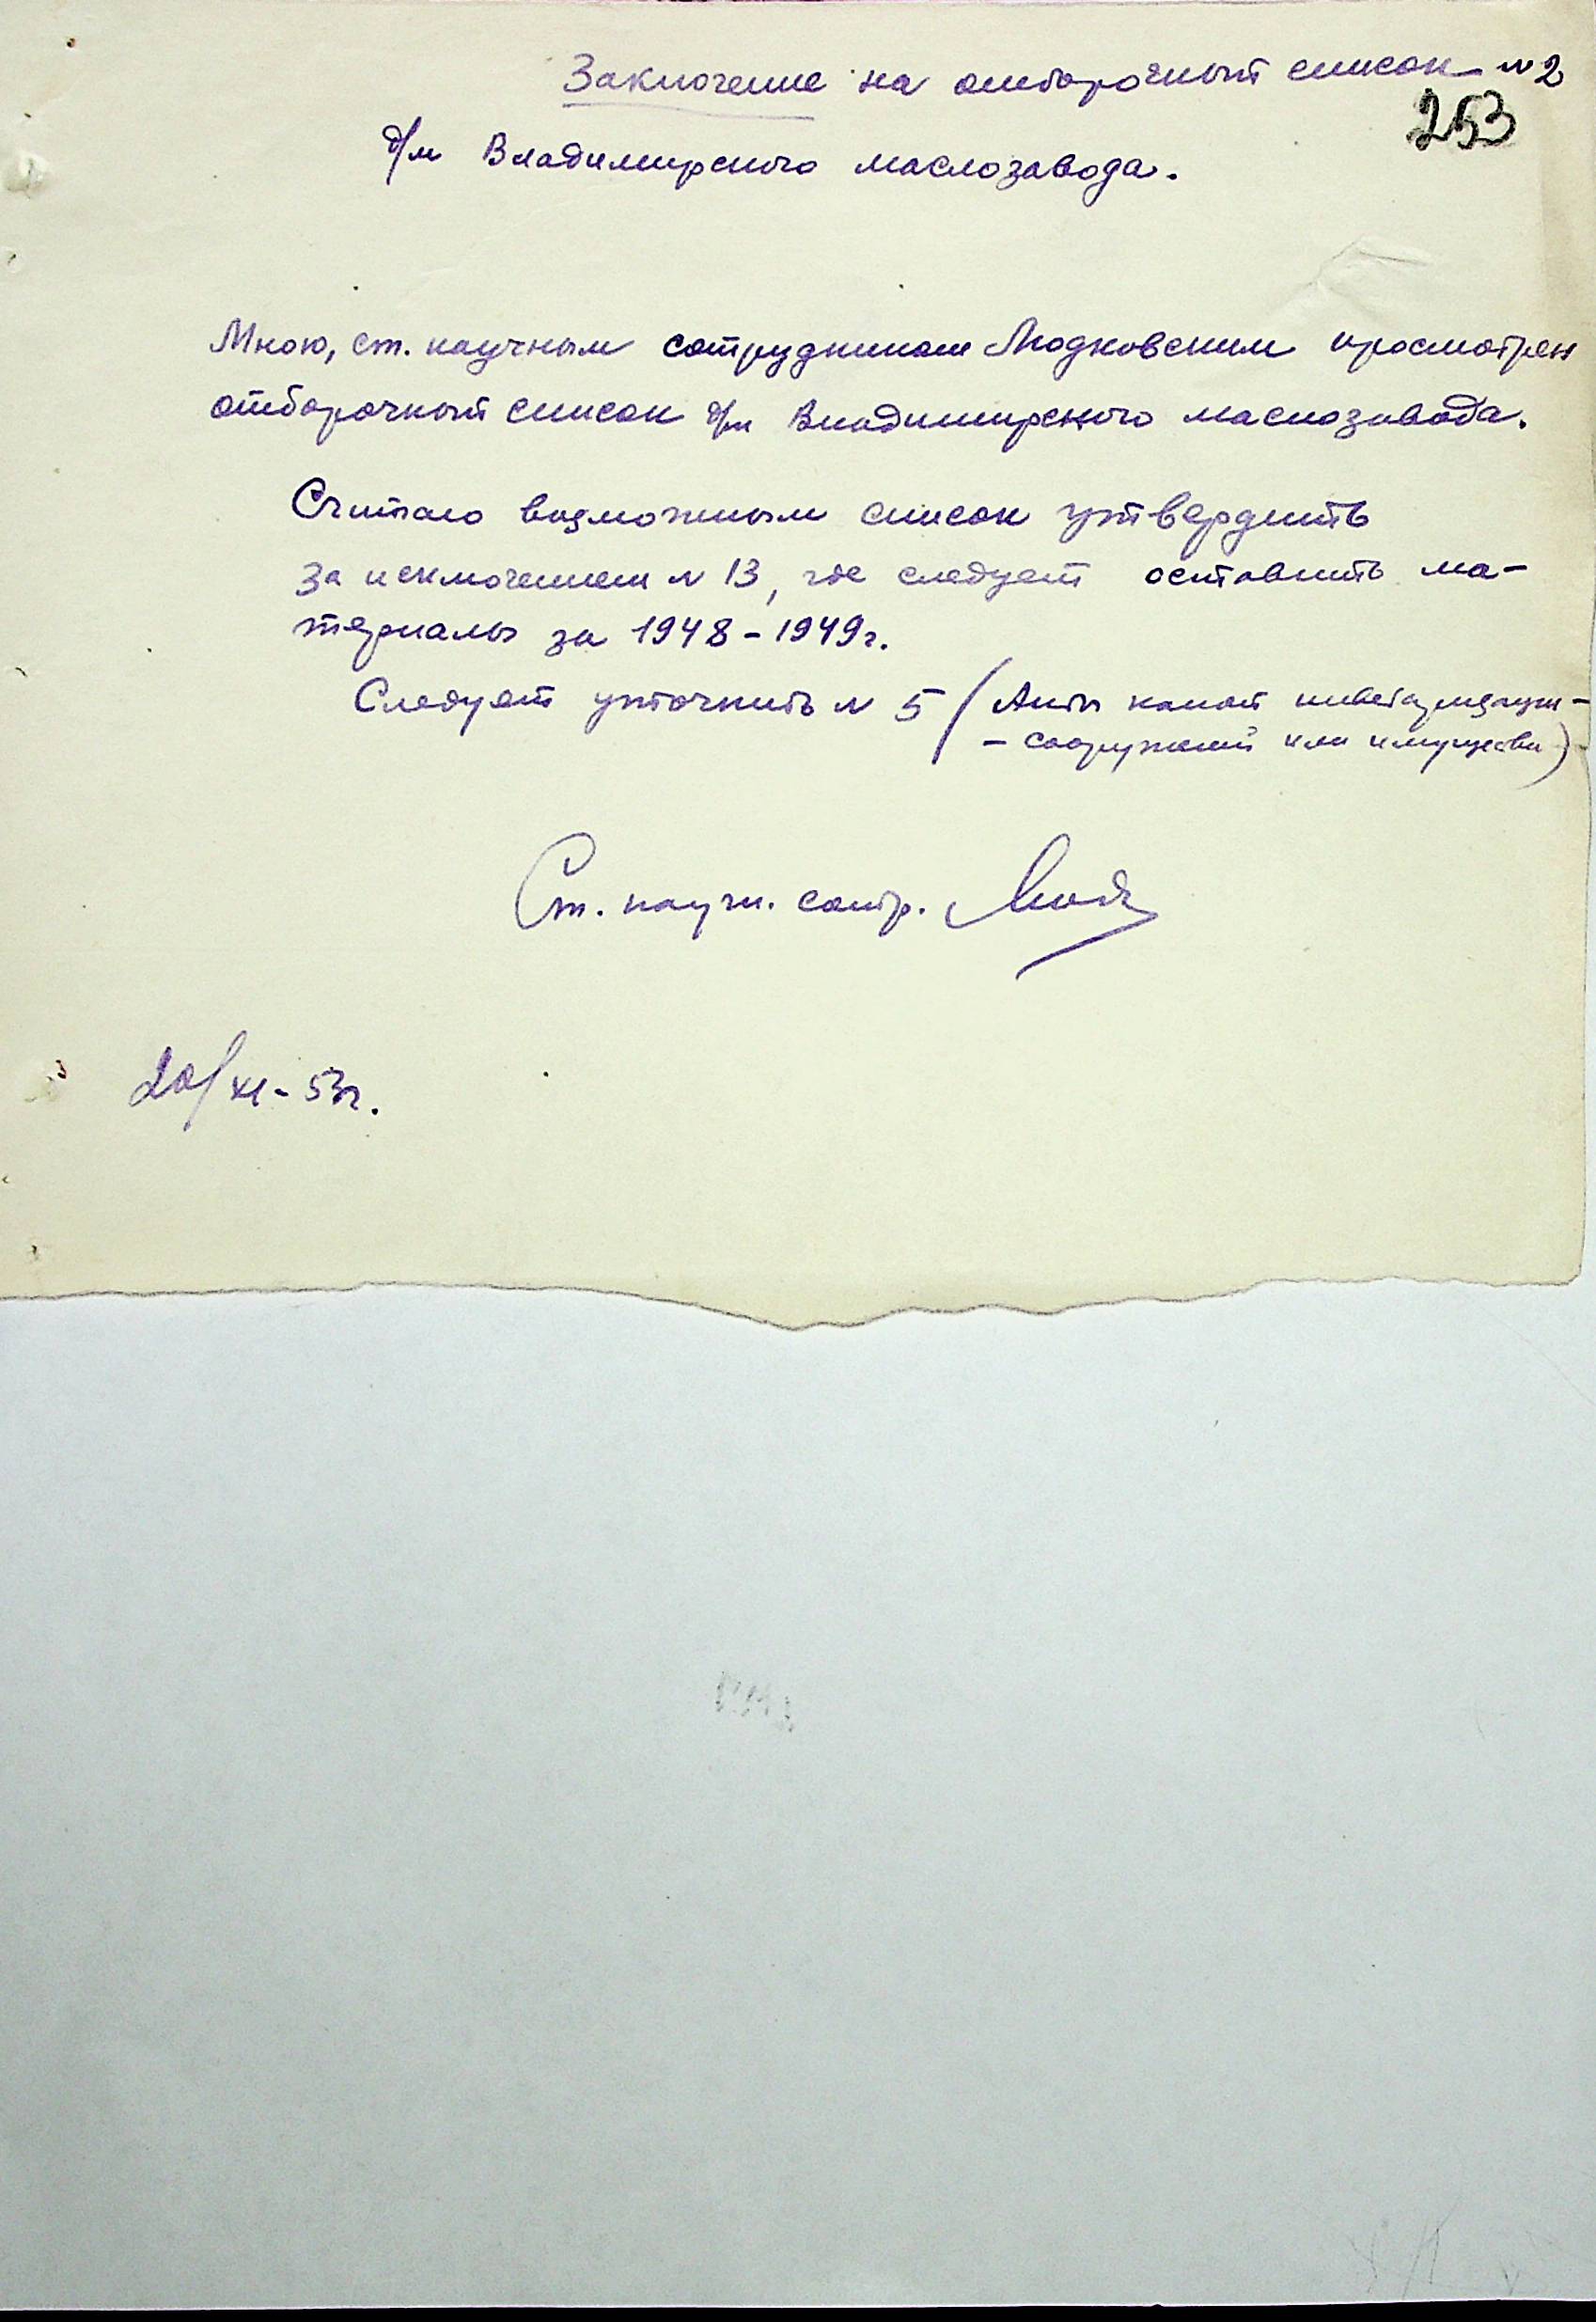 Заключение на отборочный список №2
253
д/м Владимирского маслозавода.
Мною, ст. научным сотрудником Людковским просмотрен
отборочный список д/м Владимирского маслозавода.
Считаю возможным список утвердить
за исключением № 13, где следует оставить ма-
териалы за 1948-1949г.
Следует уточнить № 5 (Акты какой инвентаризации -
- сооружений или имущества)
Ст. научн. сотр.
20/XI-53г.